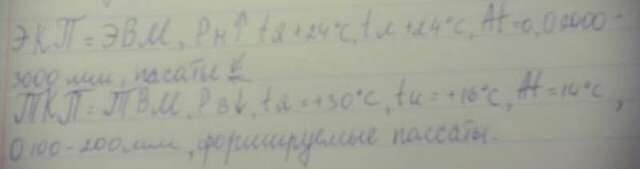 ЭКП = ЭВМ, Рн↑ tя+24°С, tи+24°С, At=0, О 2000-
3000 мм, пасаты
ТКП = ТВМ, Рв↓, tя=+30°С, tи=+16°С, At=14°С,
О 100-200 мм, формируемые пассаты.